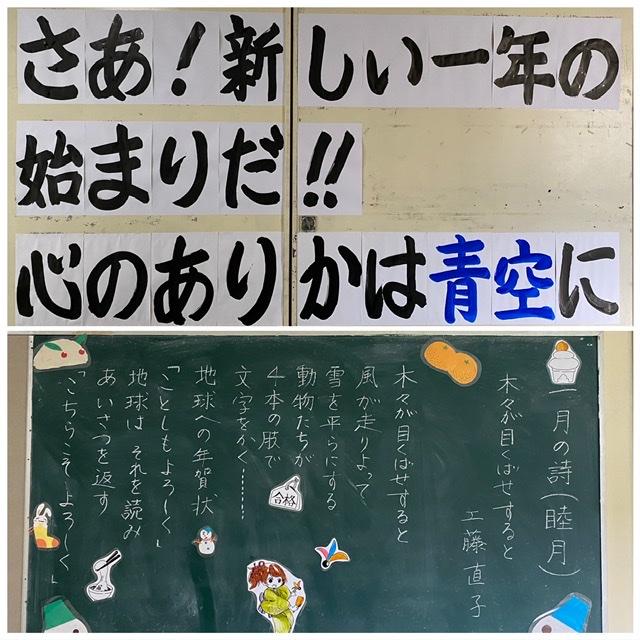 さあ！新しい一年の
始まりだ‼
心のありかは青空に
一月の詩（睦月）
木々が目くばせすると
工藤直子
木々が目くばせすると
風が走りよって
雪を平らにする
動物たちが
4本の肢で
文字をかく……
地球への年賀状
「ことしもよろしく」
地球は それを読み
あいさつを返す
「こちらこそよろしく」
合格